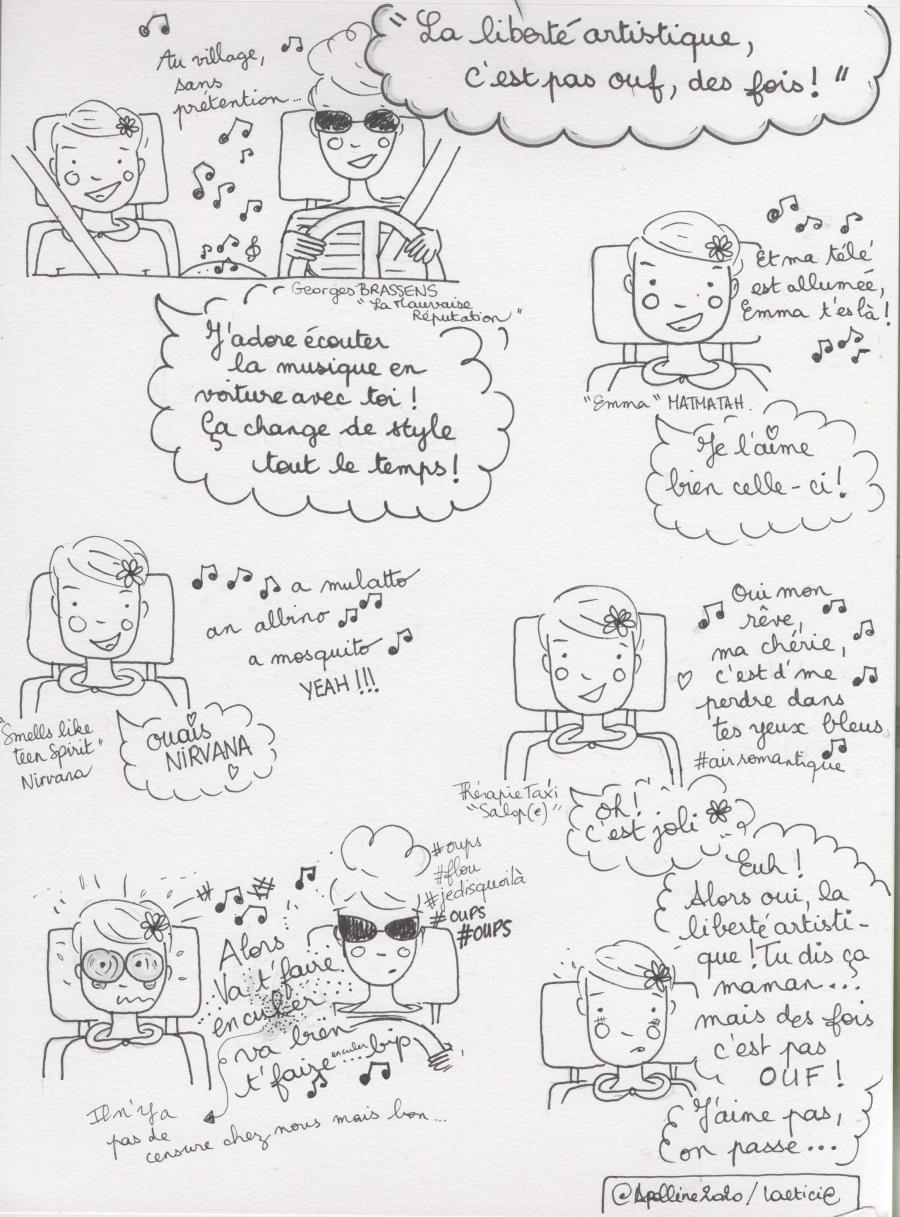 "La liberté artistique,
c'est pas ouf, des fois!"
Au village,
sans
prétention...
Georges BRASSENS
"La Mauvaise
Réputation"
J'adore écouter
la musique en
voiture avec toi!
Ça change de style
tout le temps!
Et ma télé
est allumée,
Emma t'es là!
"Emma" MATMATAH.
Je l'aime
bien celle-ci!
a mulatto
an albino
a mosquito
YEAH!!!
"Smells like
teen Spirit"
Nirvana
ouais
NIRVANA
Oui mon
rêve,
ma chérie,
c'est d'me
perdre dans
tes yeux bleus
#airromantique
Thérapie Taxi
"Salop(e)"
oh!
c'est joli
#oups
#flou
#jedisquoilà
#OUPS
#OUPS
Alors
Va t'faire
enculer
va bien
t'faire enculer ...bip
Il n'y a
pas de
censure chez nous mais bon...
Euh!
Alors oui, la
liberté artisti-
que! Tu dis ça
maman...
mais des fois
c'est pas
OUF!
J'aime pas,
on passe...
@Apolline2020/laetici@